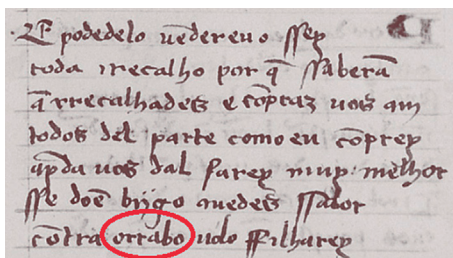 E podedelo uederevo sser
toda rrecalho por q̃ ssaberã
q̃ rrecalhades e cõpraz uos am
todos del parte como eu cõprey
ajnda uos dal farey muy melhor
sse doẽ bijgo auedes ssabor
cõtra orrabo uolo ffilharey